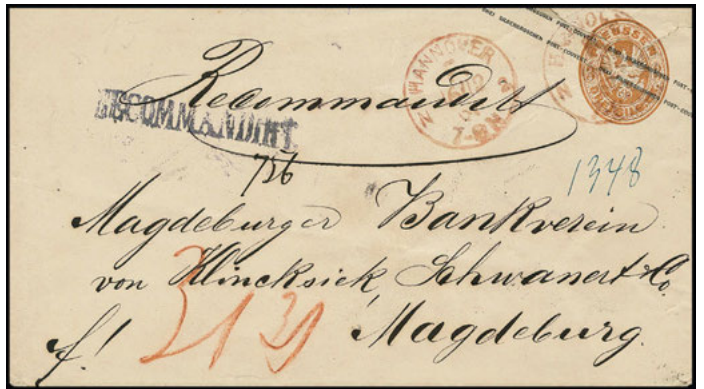 Recommandirt
RECOMMANDIRT
HANNOVER
7-8 N
PREUSSEN
756
1348
Magdeburger Bankverein
von Klincksieck, Schwanert & Co.
Magdeburg.
f!